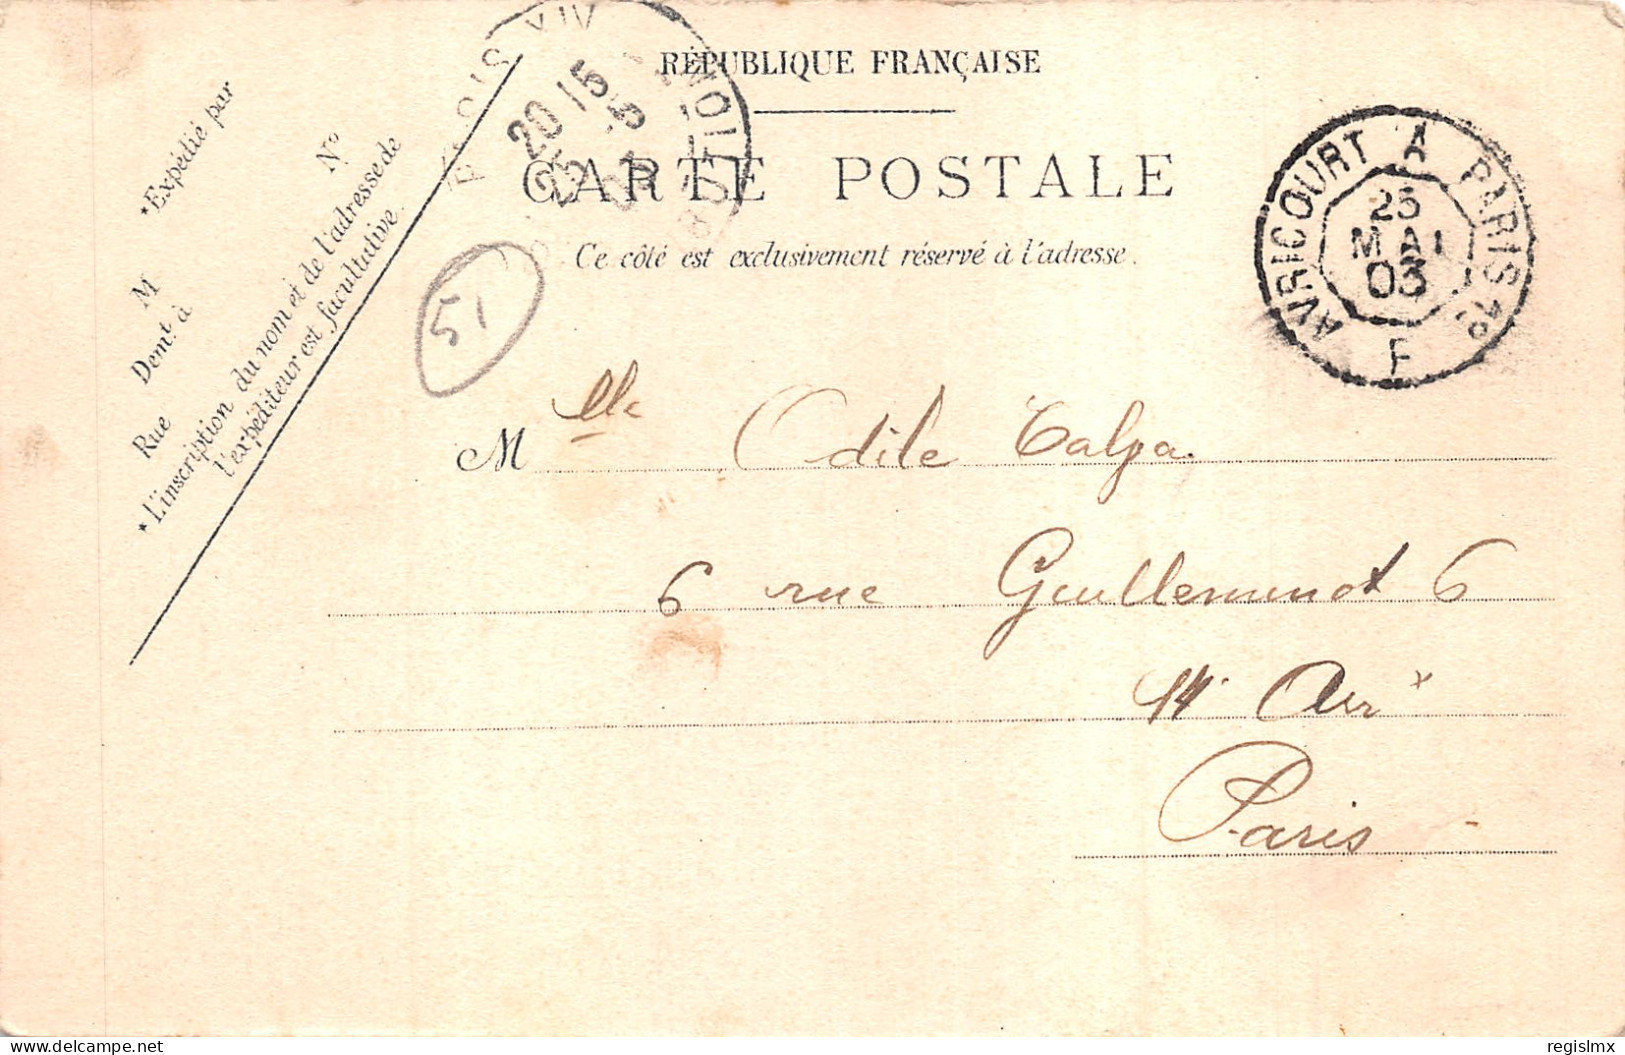 RÉPUBLIQUE FRANÇAISE
CARTE POSTALE
Ce côté est exclusivement réservé à l'adresse.
*Expédié par
M
Demt. à
Rue
No
*L'inscription du nom et de l'adresse de
l'expéditeur est facultative.
20 15
25 -5
03
DISTRIBUTION
AVRICOURT A PARIS 1o
25
MAI
03
F
51
Mlle Odile Talpa.
6 rue Guilleminot 6
14 Arr
Paris
delcampe.net
regislmx